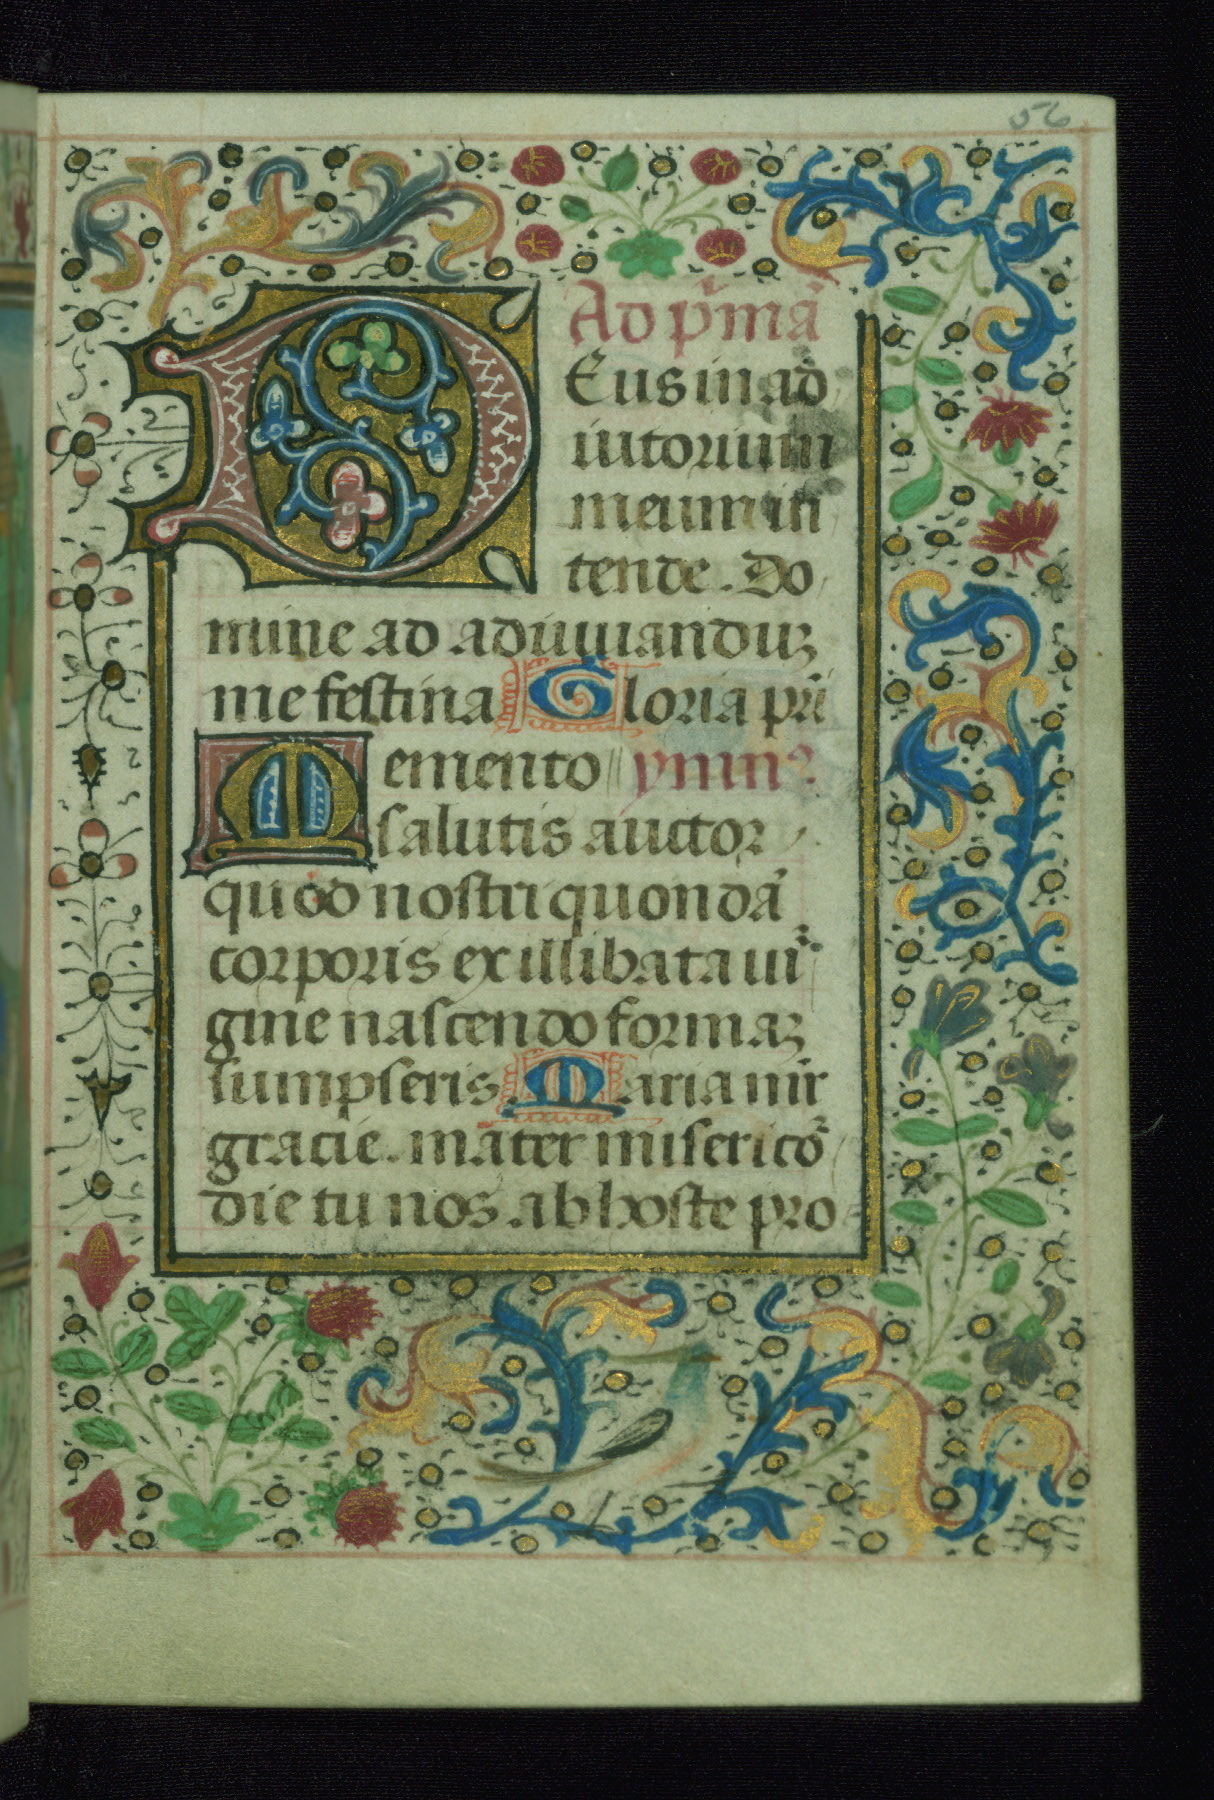 56
Ad p̄mā
Deus in ad
iutorium
meum in
tende. Do
mine ad adiuuanduꝫ
me festina Gloria pr̄i
Memento ymnꝰ
salutis auctor
quod nostri quondā
corporis ex illibata uir̄
gine nascendo formaꝫ
sumpseris. Maria mr̄
gracie. mater misericō
die tu nos ab hoste pro